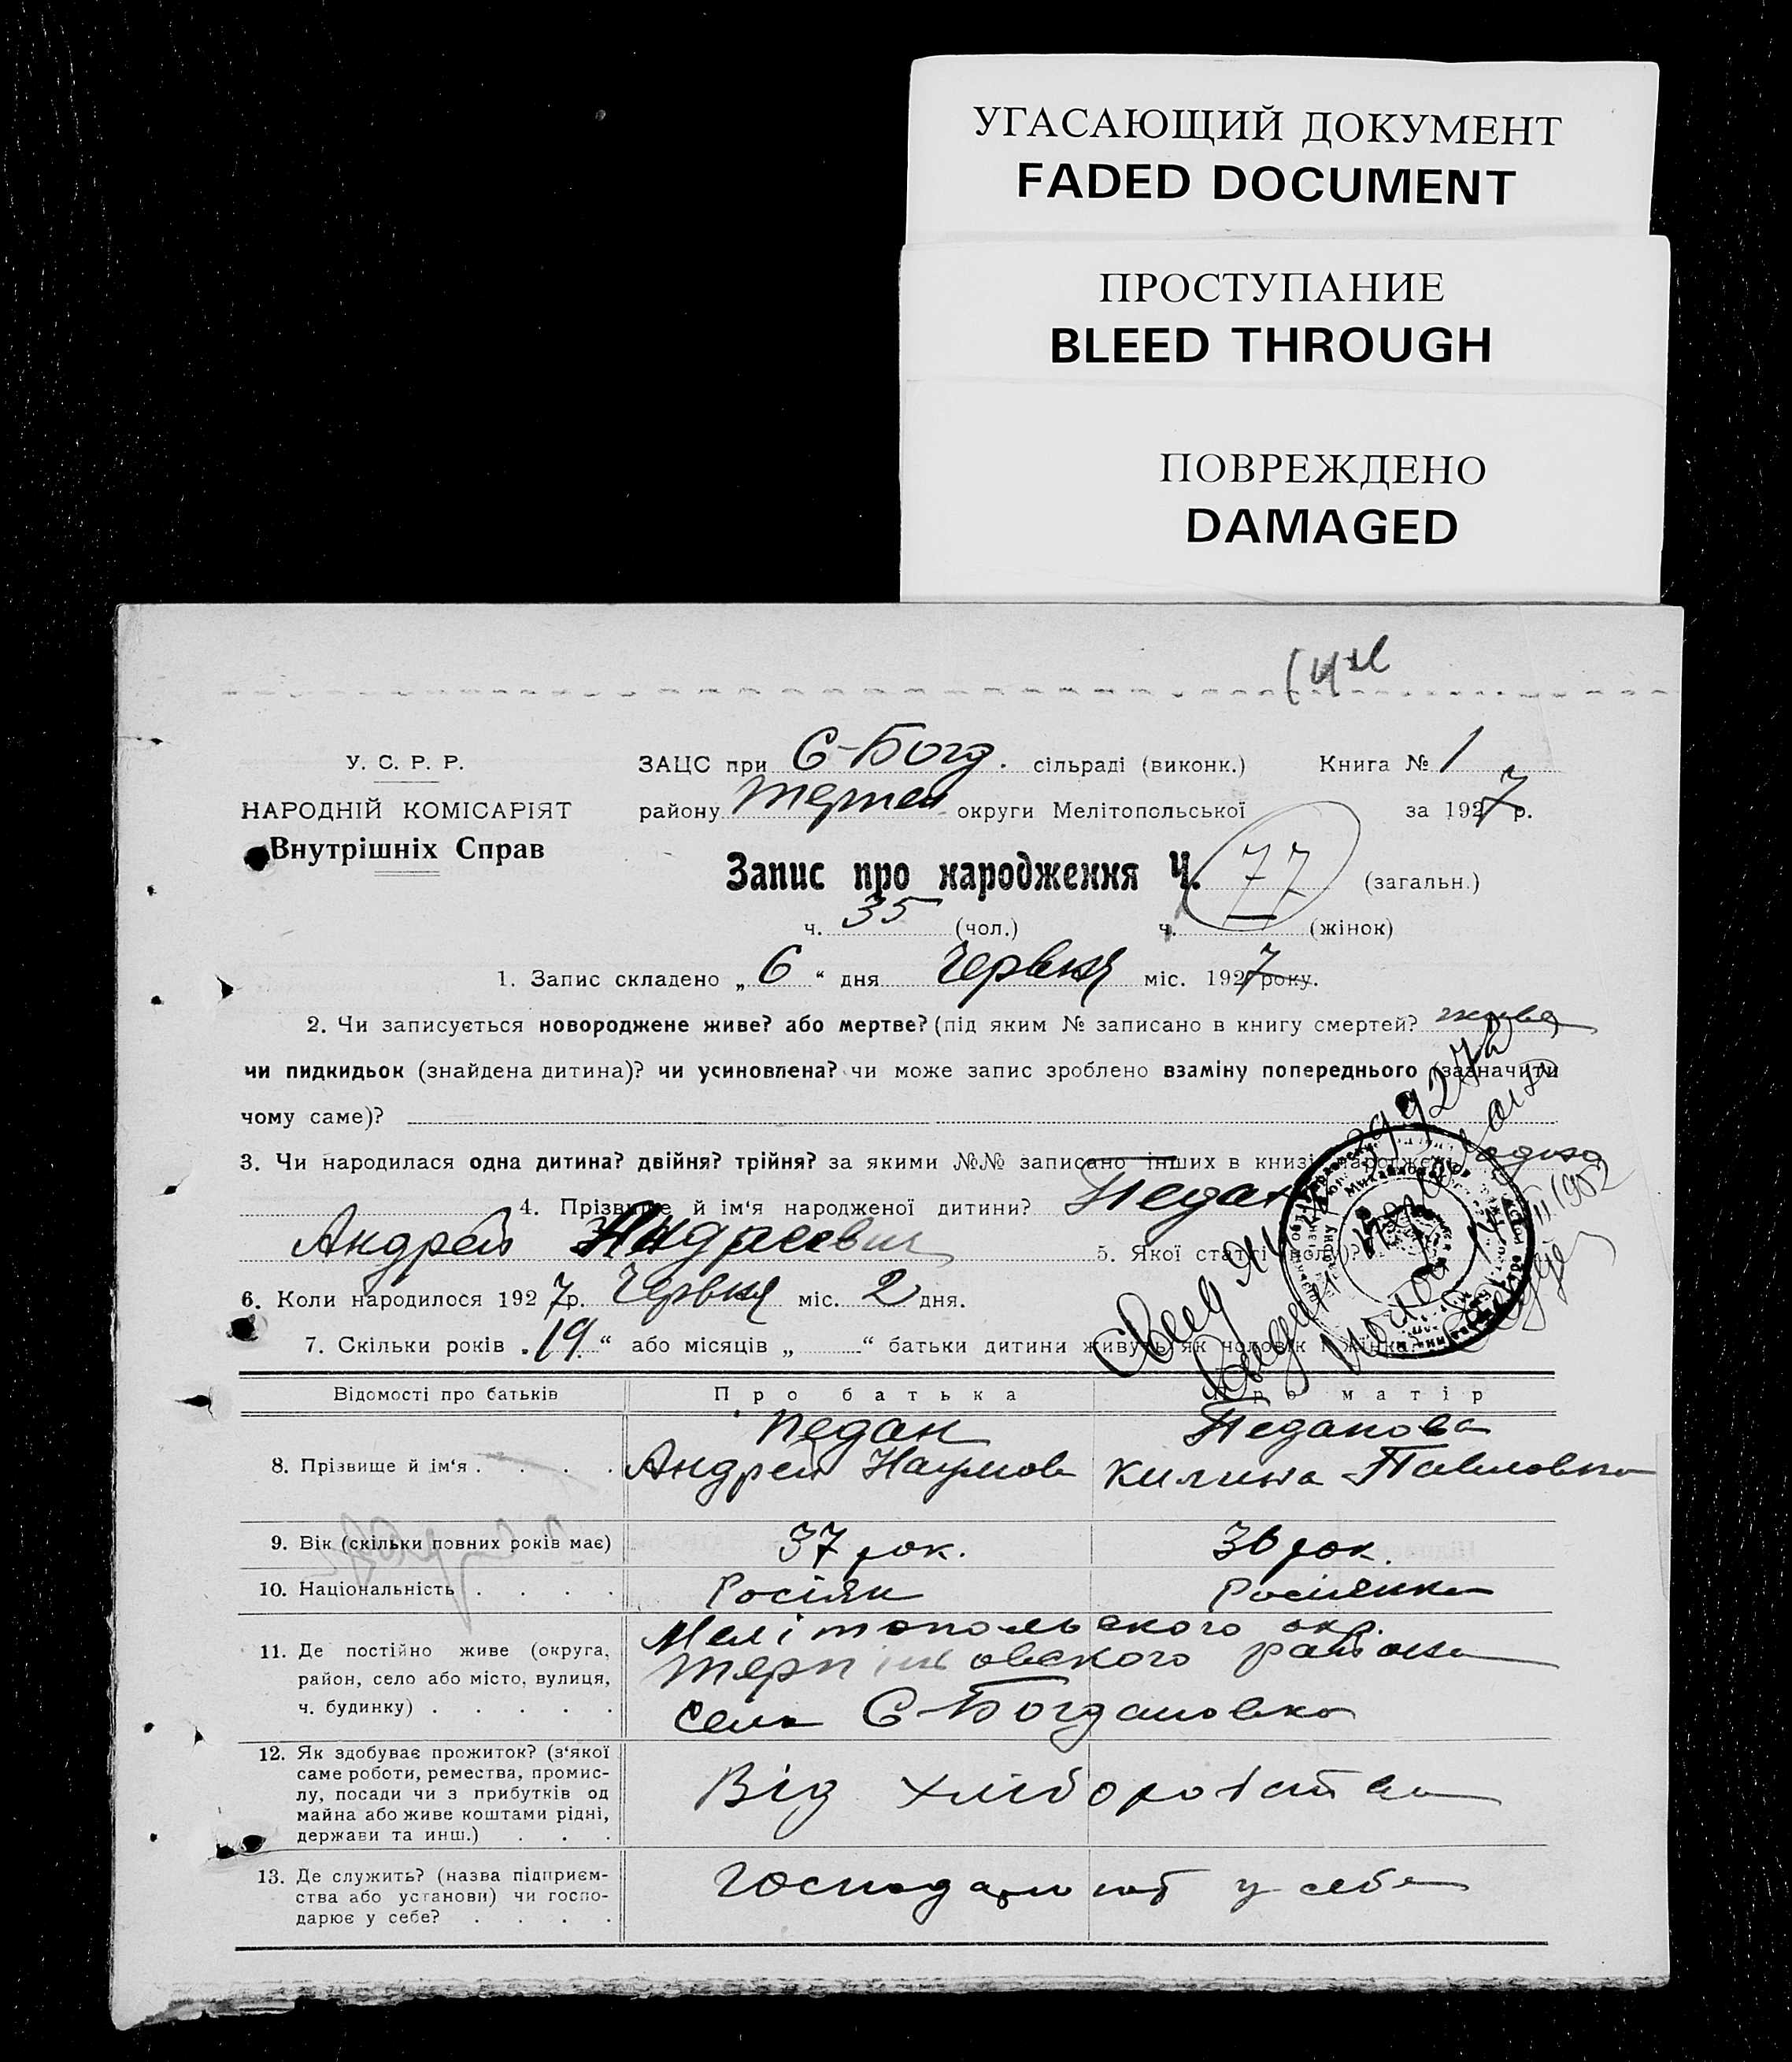 УГАСАЮЩИЙ ДОКУМЕНТ
FADED DOCUMENT
ПРОСТУПАНИЕ
BLEED THROUGH
ПОВРЕЖДЕНО
DAMAGED
У. С. Р. Р.
НАРОДНІЙ КОМІСАРІЯТ
Внутрішніх Справ
ЗАЦС при С-Богд. сільраді (виконк.) Книга № 1
району округи Мелітопольської за 1927 р.
Запис про народження Ч. 77 (загальн.)
ч. 35 (чол.) ч. (жінок)
1. Запис складено „ 6 “ дня Червня міс. 1927 року.
2. Чи записується новороджене живе? або мертве? (під яким № записано в книгу смертей? живе
чи пидкидьок (знайдена дитина)? чи усиновлена? чи може запис зроблено взаміну попереднього (зазначити
чому саме)?
3. Чи народилася одна дитина? двійня? трійня? за якими №№ записано інших в книзі народжень одна
4. Прізвище й ім‘я народженої дитини? Педан
Андрей Андреевич 5. Якої статті (полу)?
6. Коли народилося 1927 р. Червня міс. 2 дня.
7. Скільки років „ 19 “ або місяців „ “ батьки дитини живуть як чоловік і жінка
Відомості про батьків Про батька Про матір
8. Прізвище й ім‘я . . . .
Педан
Андрей Наумов
Педанова
Килина Павловна
9. Вік (скільки повних років має) 37 рок. 36 рок.
10. Національність . . . . Росіян Росіянка
11. Де постійно живе (округа,
район, село або місто, вулиця,
ч. будинку) . . . . .
Мелітопольского окр.
района
село С-Богдановка
12. Як здобуває прожиток? (з‘якої
саме роботи, ремества, промис-
лу, посади чи з прибутків од
майна або живе коштами рідні,
держави та инш.) . . .
Від хліборобства
13. Де служить? (назва підприєм-
ства або установи) чи госпо-
дарює у себе? . . . .
у себе